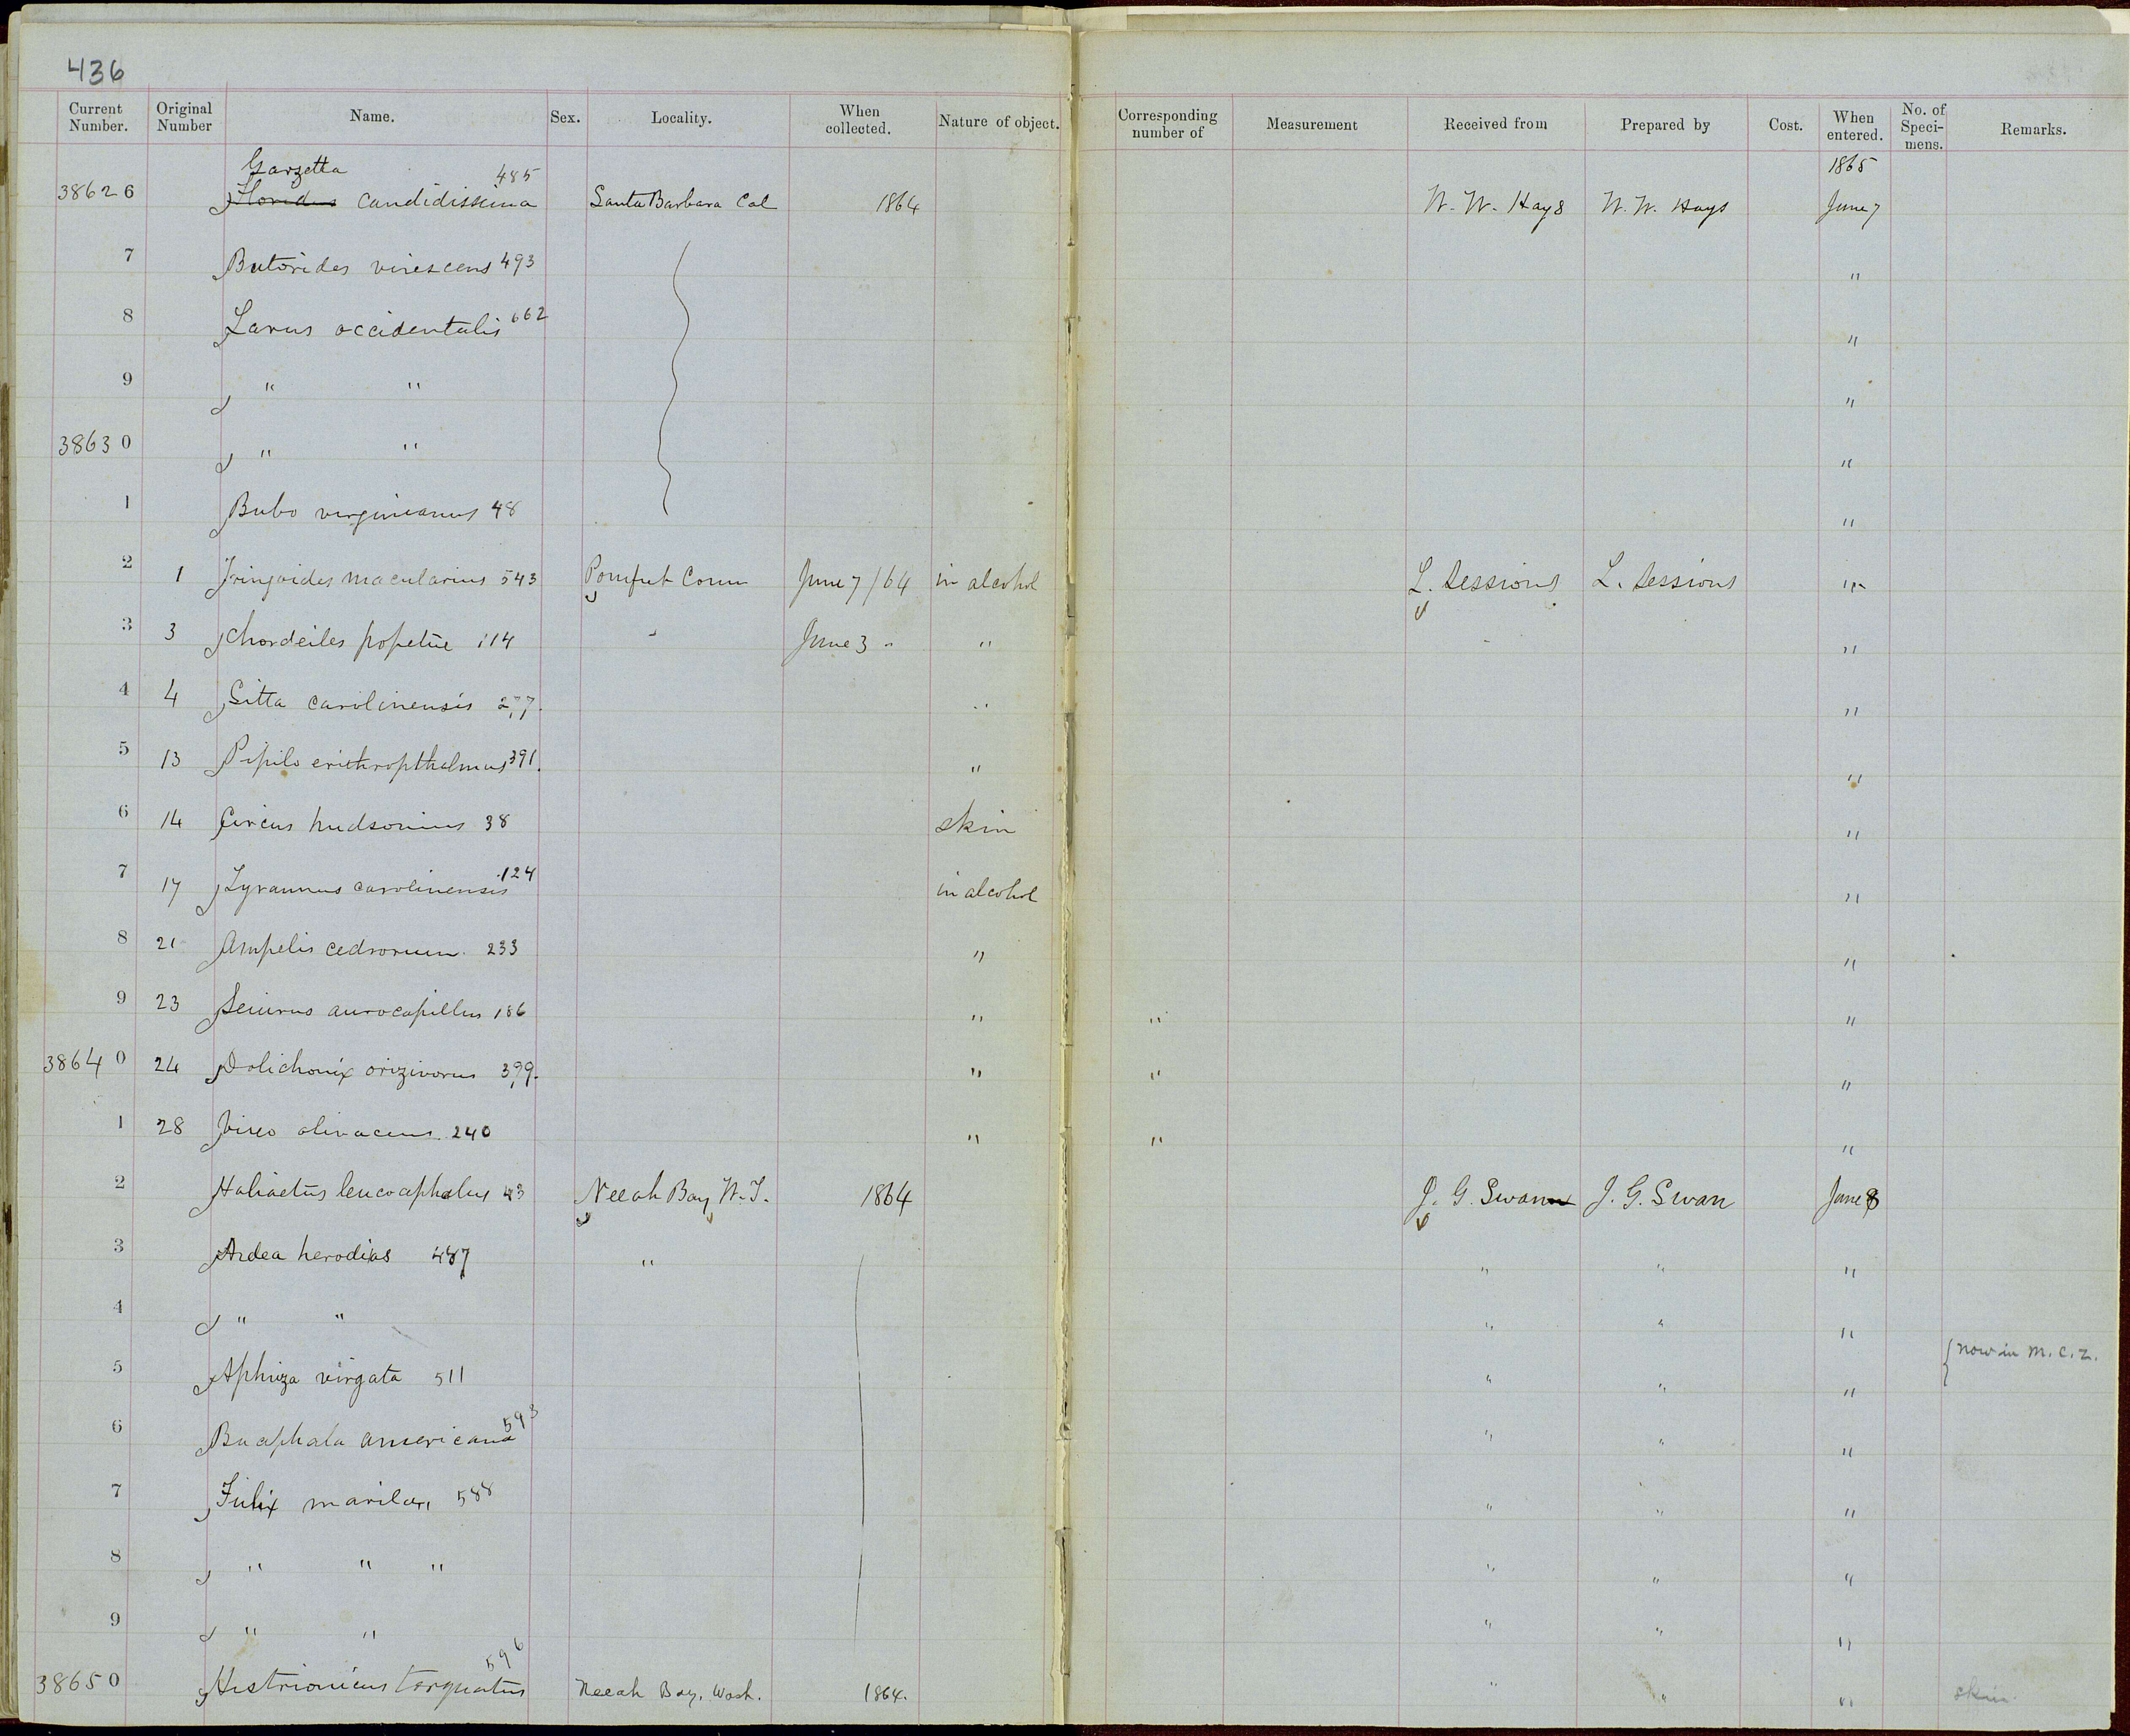 436
Current Number. Original Number Name. Sex. Locality. When collected. Nature of object. Corresponding number of Measurement Received from Prepared by Cost. When entered. No. of Specimens. Remarks.
Garzetta 485 1865
38626 candidissima Santa Barbara Cal 1864 W. W. Hays W. W. Hays June 7
7 Butorides virescens 493 "
8 Larus occidentalis 662 "
9 " " "
38630 " " "
1 Bubo virginianus 48 "
2 1 Tringoides macularius 543 Pomfret Conn June 7/64 in alcohol L. Sessions L. Sessions "
3 3 Chordeiles popetue 114 " June 3 " " " "
4 4 Sitta carolinensis 277. " "
5 13 Pipilo erithropthalmus 391. " "
6 14 Circus hudsonius 38 skin "
7 17 Tyrannus carolinensis 124 in alcohol "
8 21 Ampelis cedrorum. 233 " "
9 23 Seiurus aurocapillus 186 " " "
38640 24 Dolichonix orizivorus 399. " " "
1 28 Vireo olivaceus 240 " " "
2 Haliaetus leucocephalus 43 Neeah Bay W.T. 1864 J. G. Swan J. G. Swan June 8
3 Ardea herodias 487 " " " "
4 " " " " "
5 Aphriza virgata 511 " " " { now in M.C.Z.
6 Bucephala americana 593 " " "
7 Fulix marila 588 " " "
8 " " " " " "
9 " " " " "
38650 Histrionicus torquatus 596 Neeah Bay, Wash. 1864. " " " skin